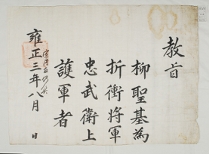 教旨
柳聖基為
折衝將軍
忠武衛上
護軍者
雍正三年八月　日